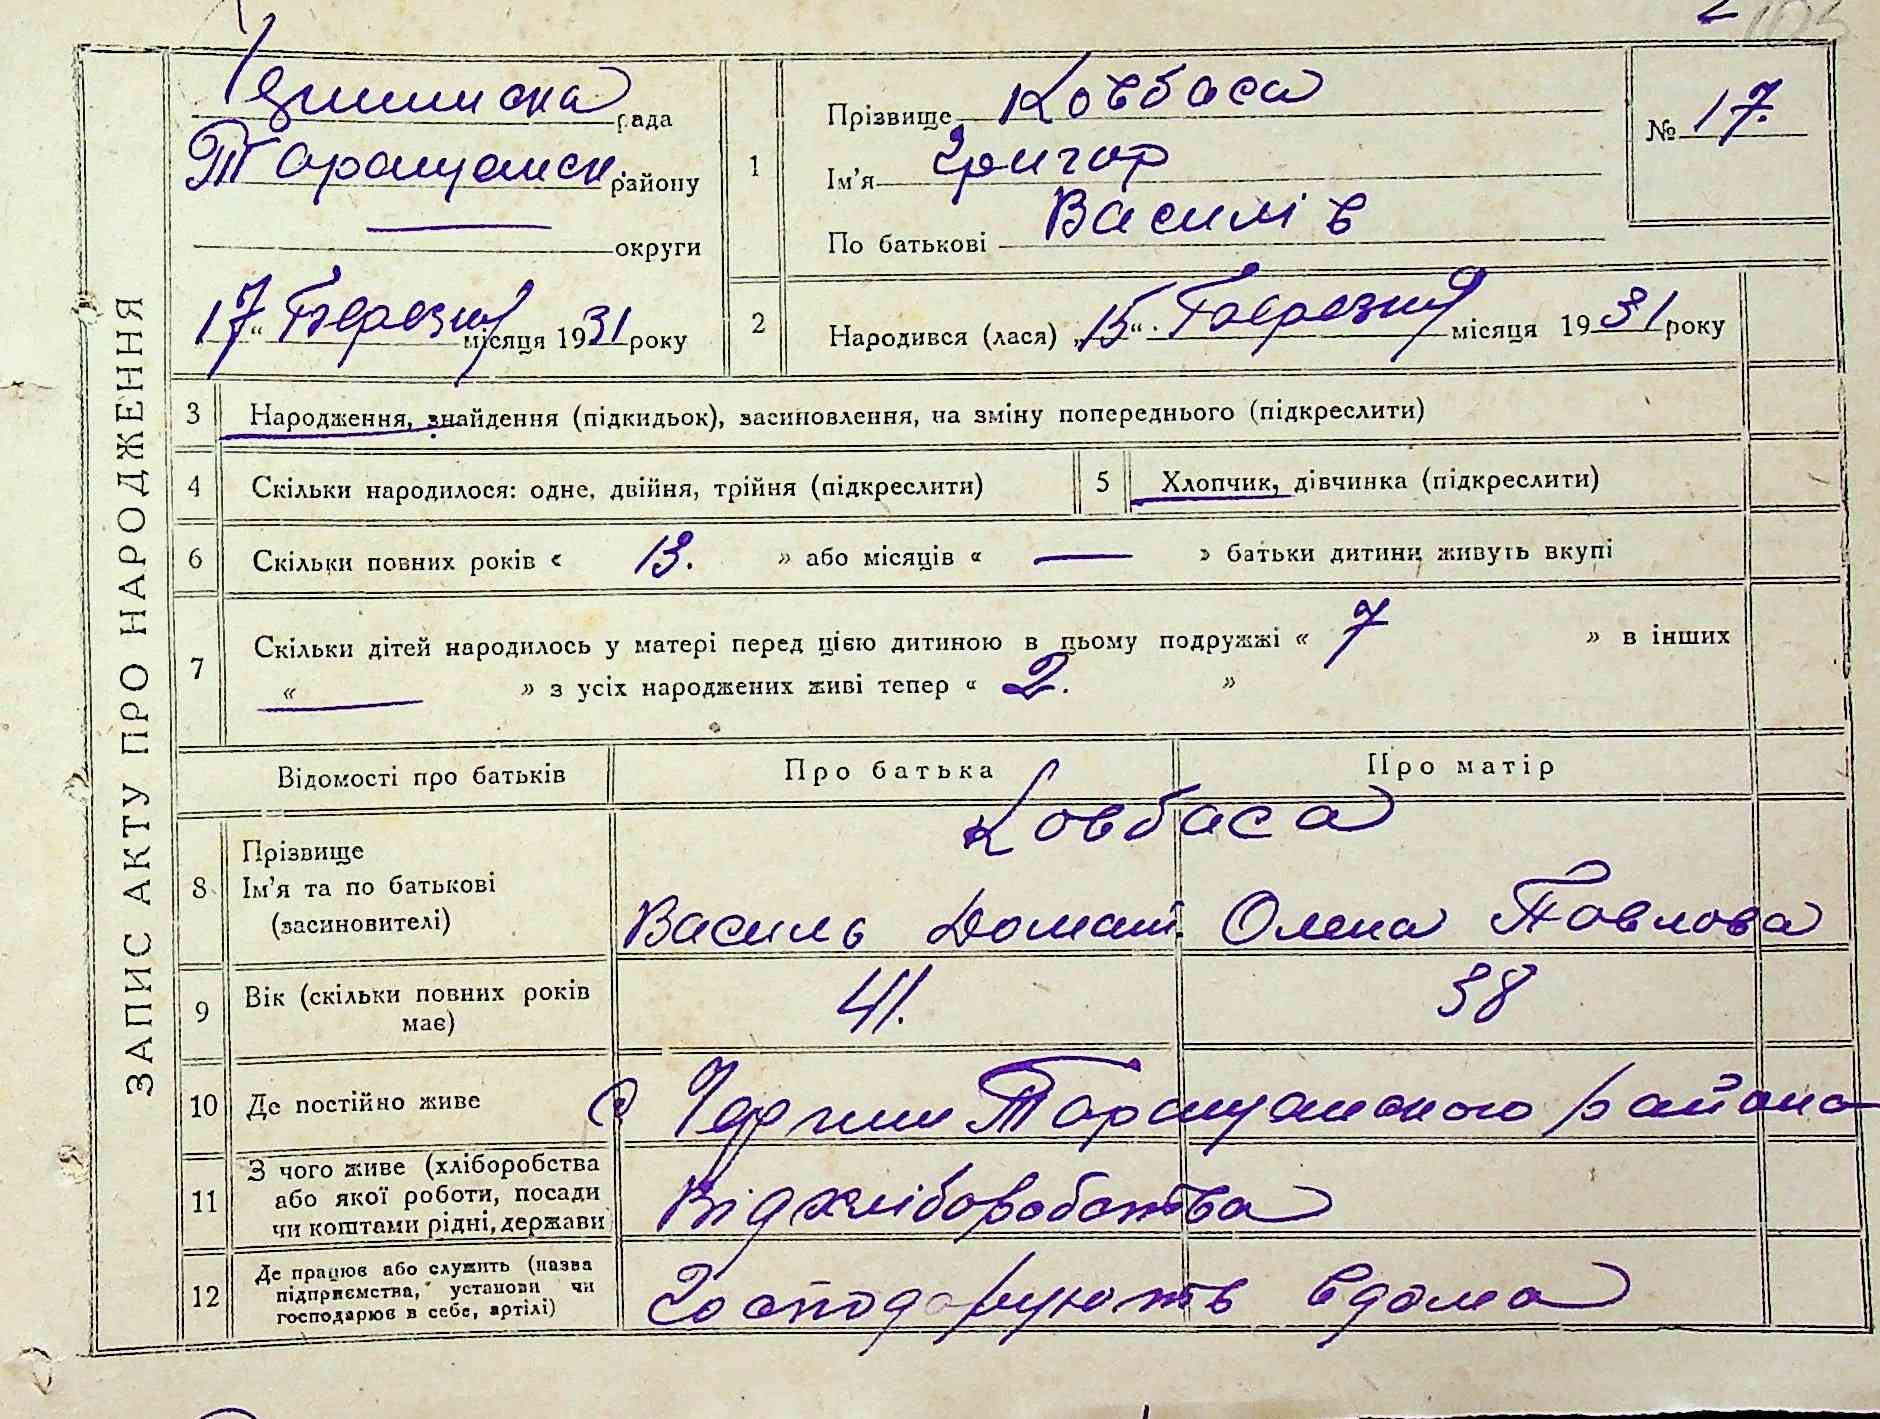 ЗАПИС АКТУ ПРО НАРОДЖЕННЯ
рада
Таращанськ. району
— округи
"17" Березня місяця 1931 року
1 Прізвище Ковбаса
Ім'я Григор
По батькові Василів
№ 17.
2 Народився (лася) „15“ Березня місяця 1931 року
3 Народження, знайдення (підкидьок), засиновлення, на зміну попереднього (підкреслити)
4 Скільки народилося: одне, двійня, трійня (підкреслити)
5 Хлопчик, дівчинка (підкреслити)
6 Скільки повних років « 13. » або місяців « — » батьки дитини живуть вкупі
7 Скільки дітей народилось у матері перед цією дитиною в цьому подружжі « 7 » в інших
« — » з усіх народжених живі тепер « 2. »
Відомості про батьків Про батька Про матір
8 Прізвище Ковбаса
Ім'я та по батькові
(засиновителі) Василь Домаш. Олена Павлова
9 Вік (скільки повних років має) 41. 38
10 Де постійно живе с. Таращанского района
11 З чого живе (хліборобства
або якої роботи, посади
чи коштами рідні, держави Від хліборобства
12 Де працює або служить (назва
підприємства, установи чи
господарює в себе, артілі) Господарують вдома